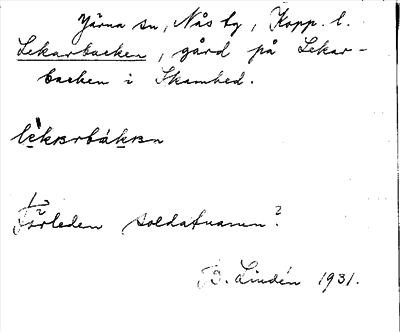 Järna sn, Nås by, Kopp. l.
Lekarbacken, gård på Lekar-
backen i Skamhed.
Förleden soldatnamn?
B. Lindén 1931.